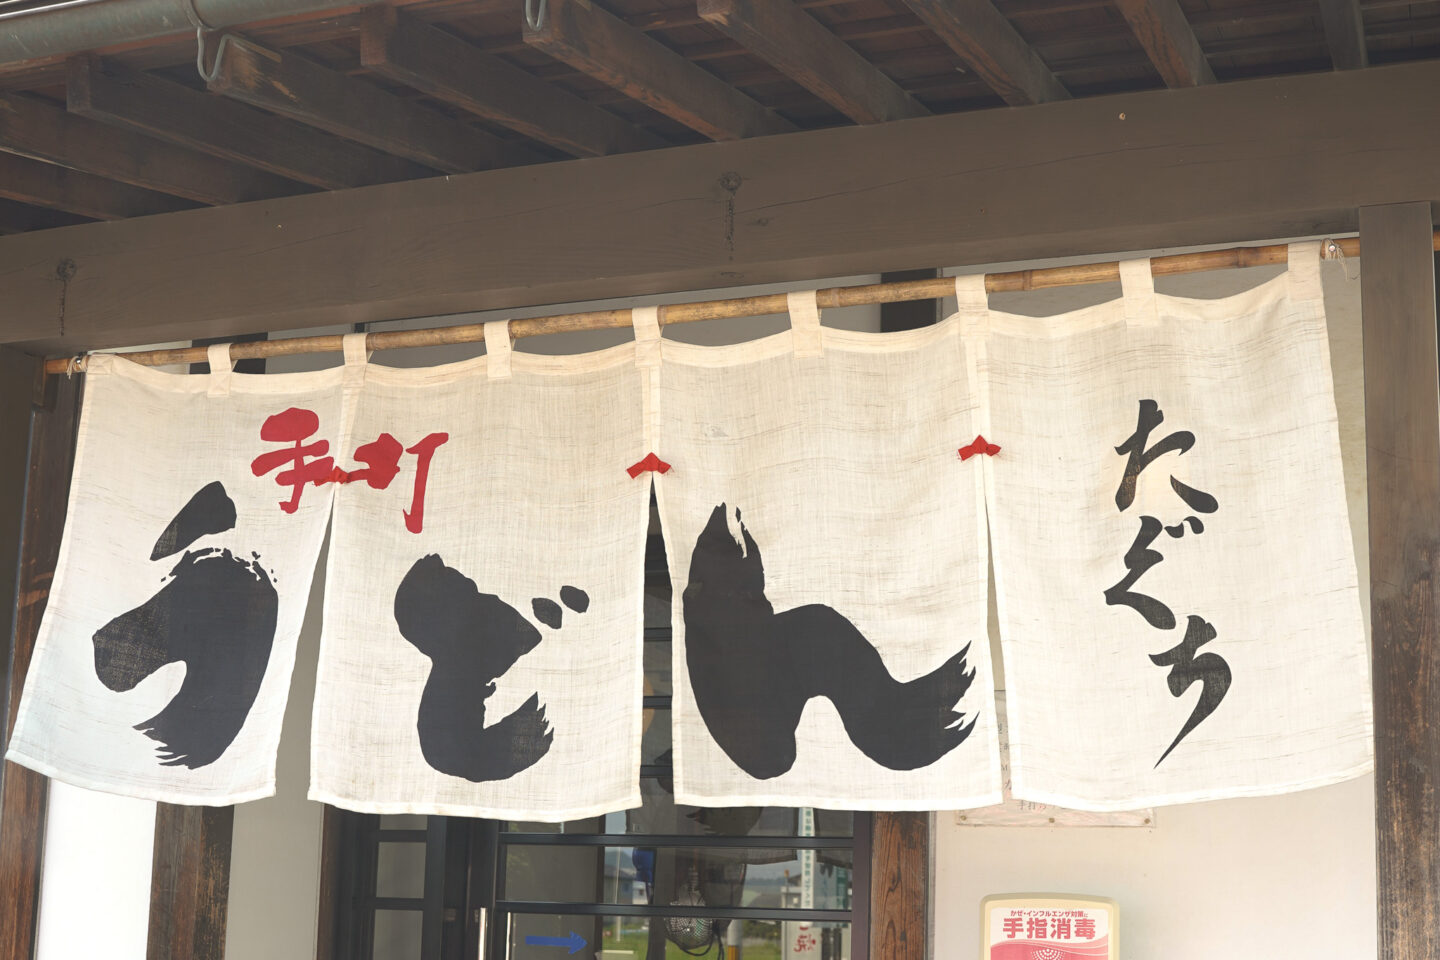 手打
うどん
たぐち
かぜ・インフルエンザ対策に
手指消毒